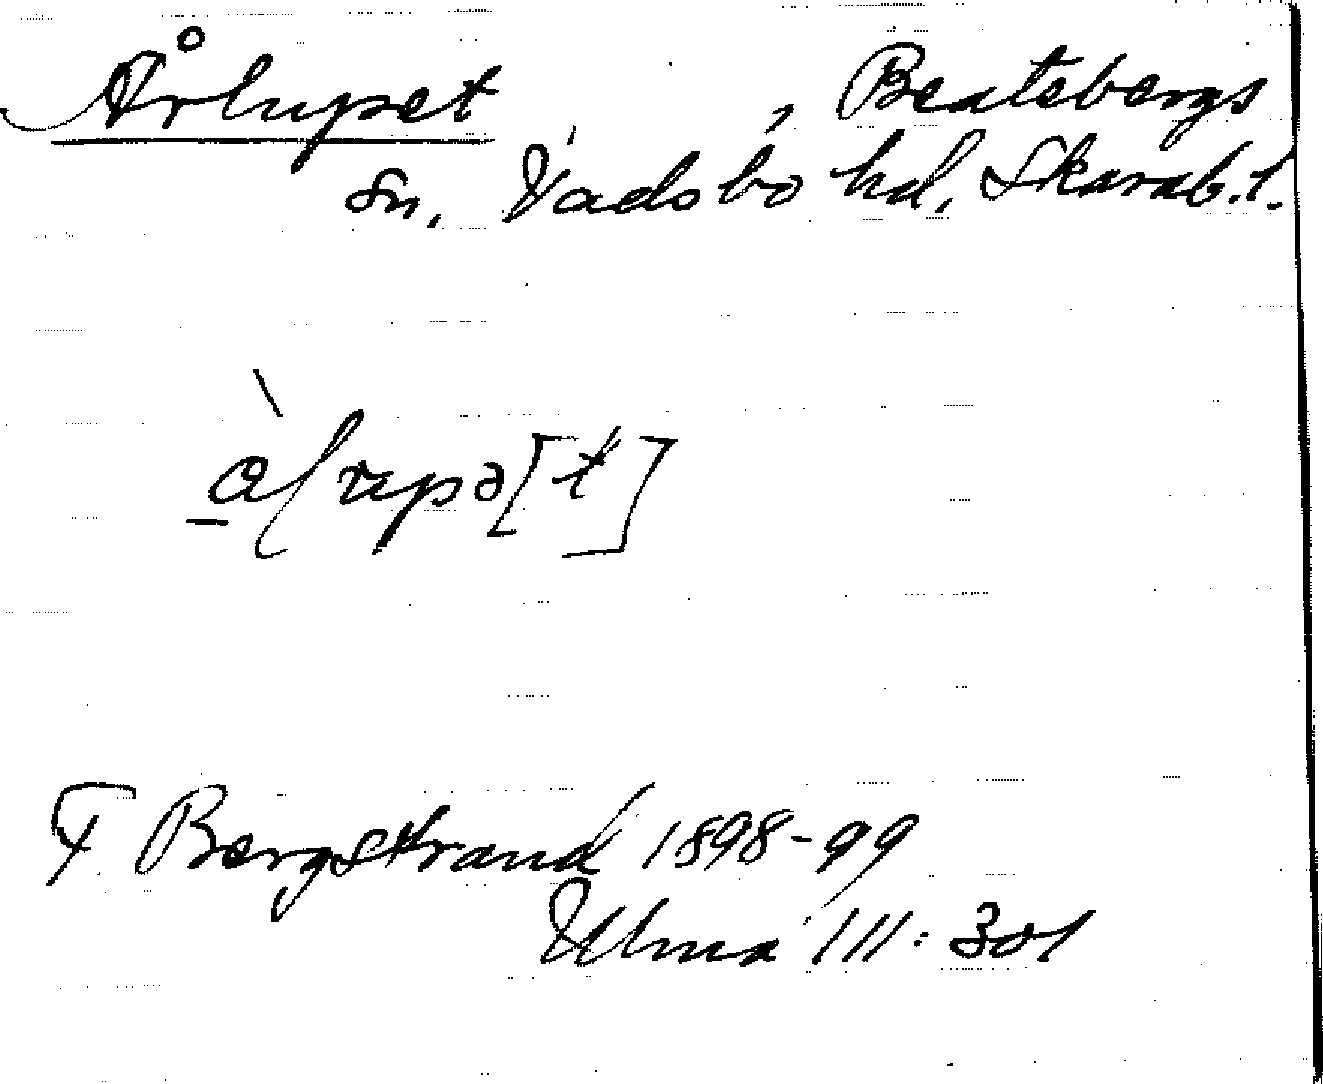 Årlupet, Beatebergs
sn, Vadsbo hd, Skarab. l.
T Bergstrand 1898-99
Ulma 111:301